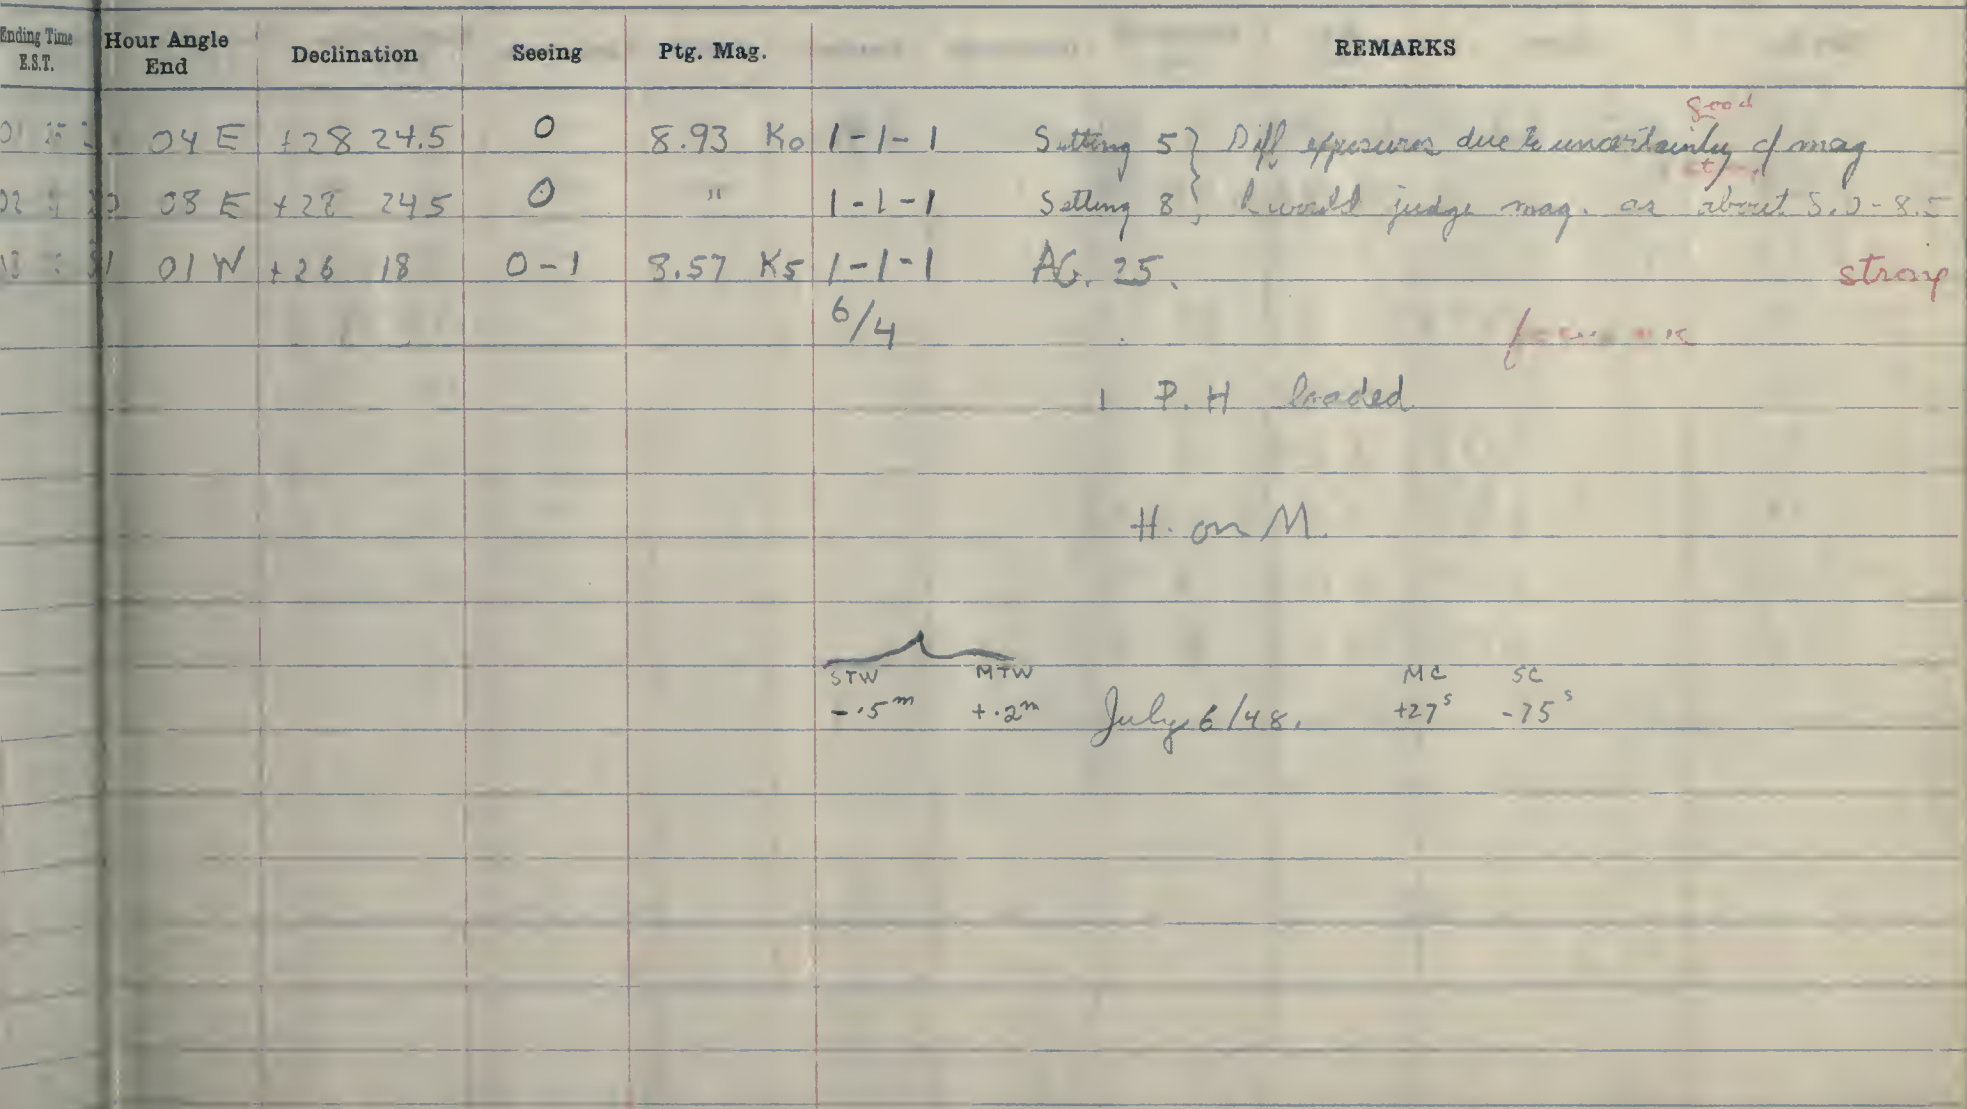 Ending Time E.S.T. Hour Angle End Declination Seeing Ptg. Mag. REMARKS
good
04 E +28 24.5 0 8.93 K0 1-1-1 Setting 5 } Diff exposures due to uncertainty of mag
08 E +28 245 0 " 1-1-1 Setting 8 } I would judge mag. as about 8.0-8.5
01 W +26 18 0-1 8.57 K5 1-1-1 AG. 25. strong
6/4
1 P.H loaded
H. on M.
STW MTW MC SC
-.5m +.2m July 6/48. +27s -75s